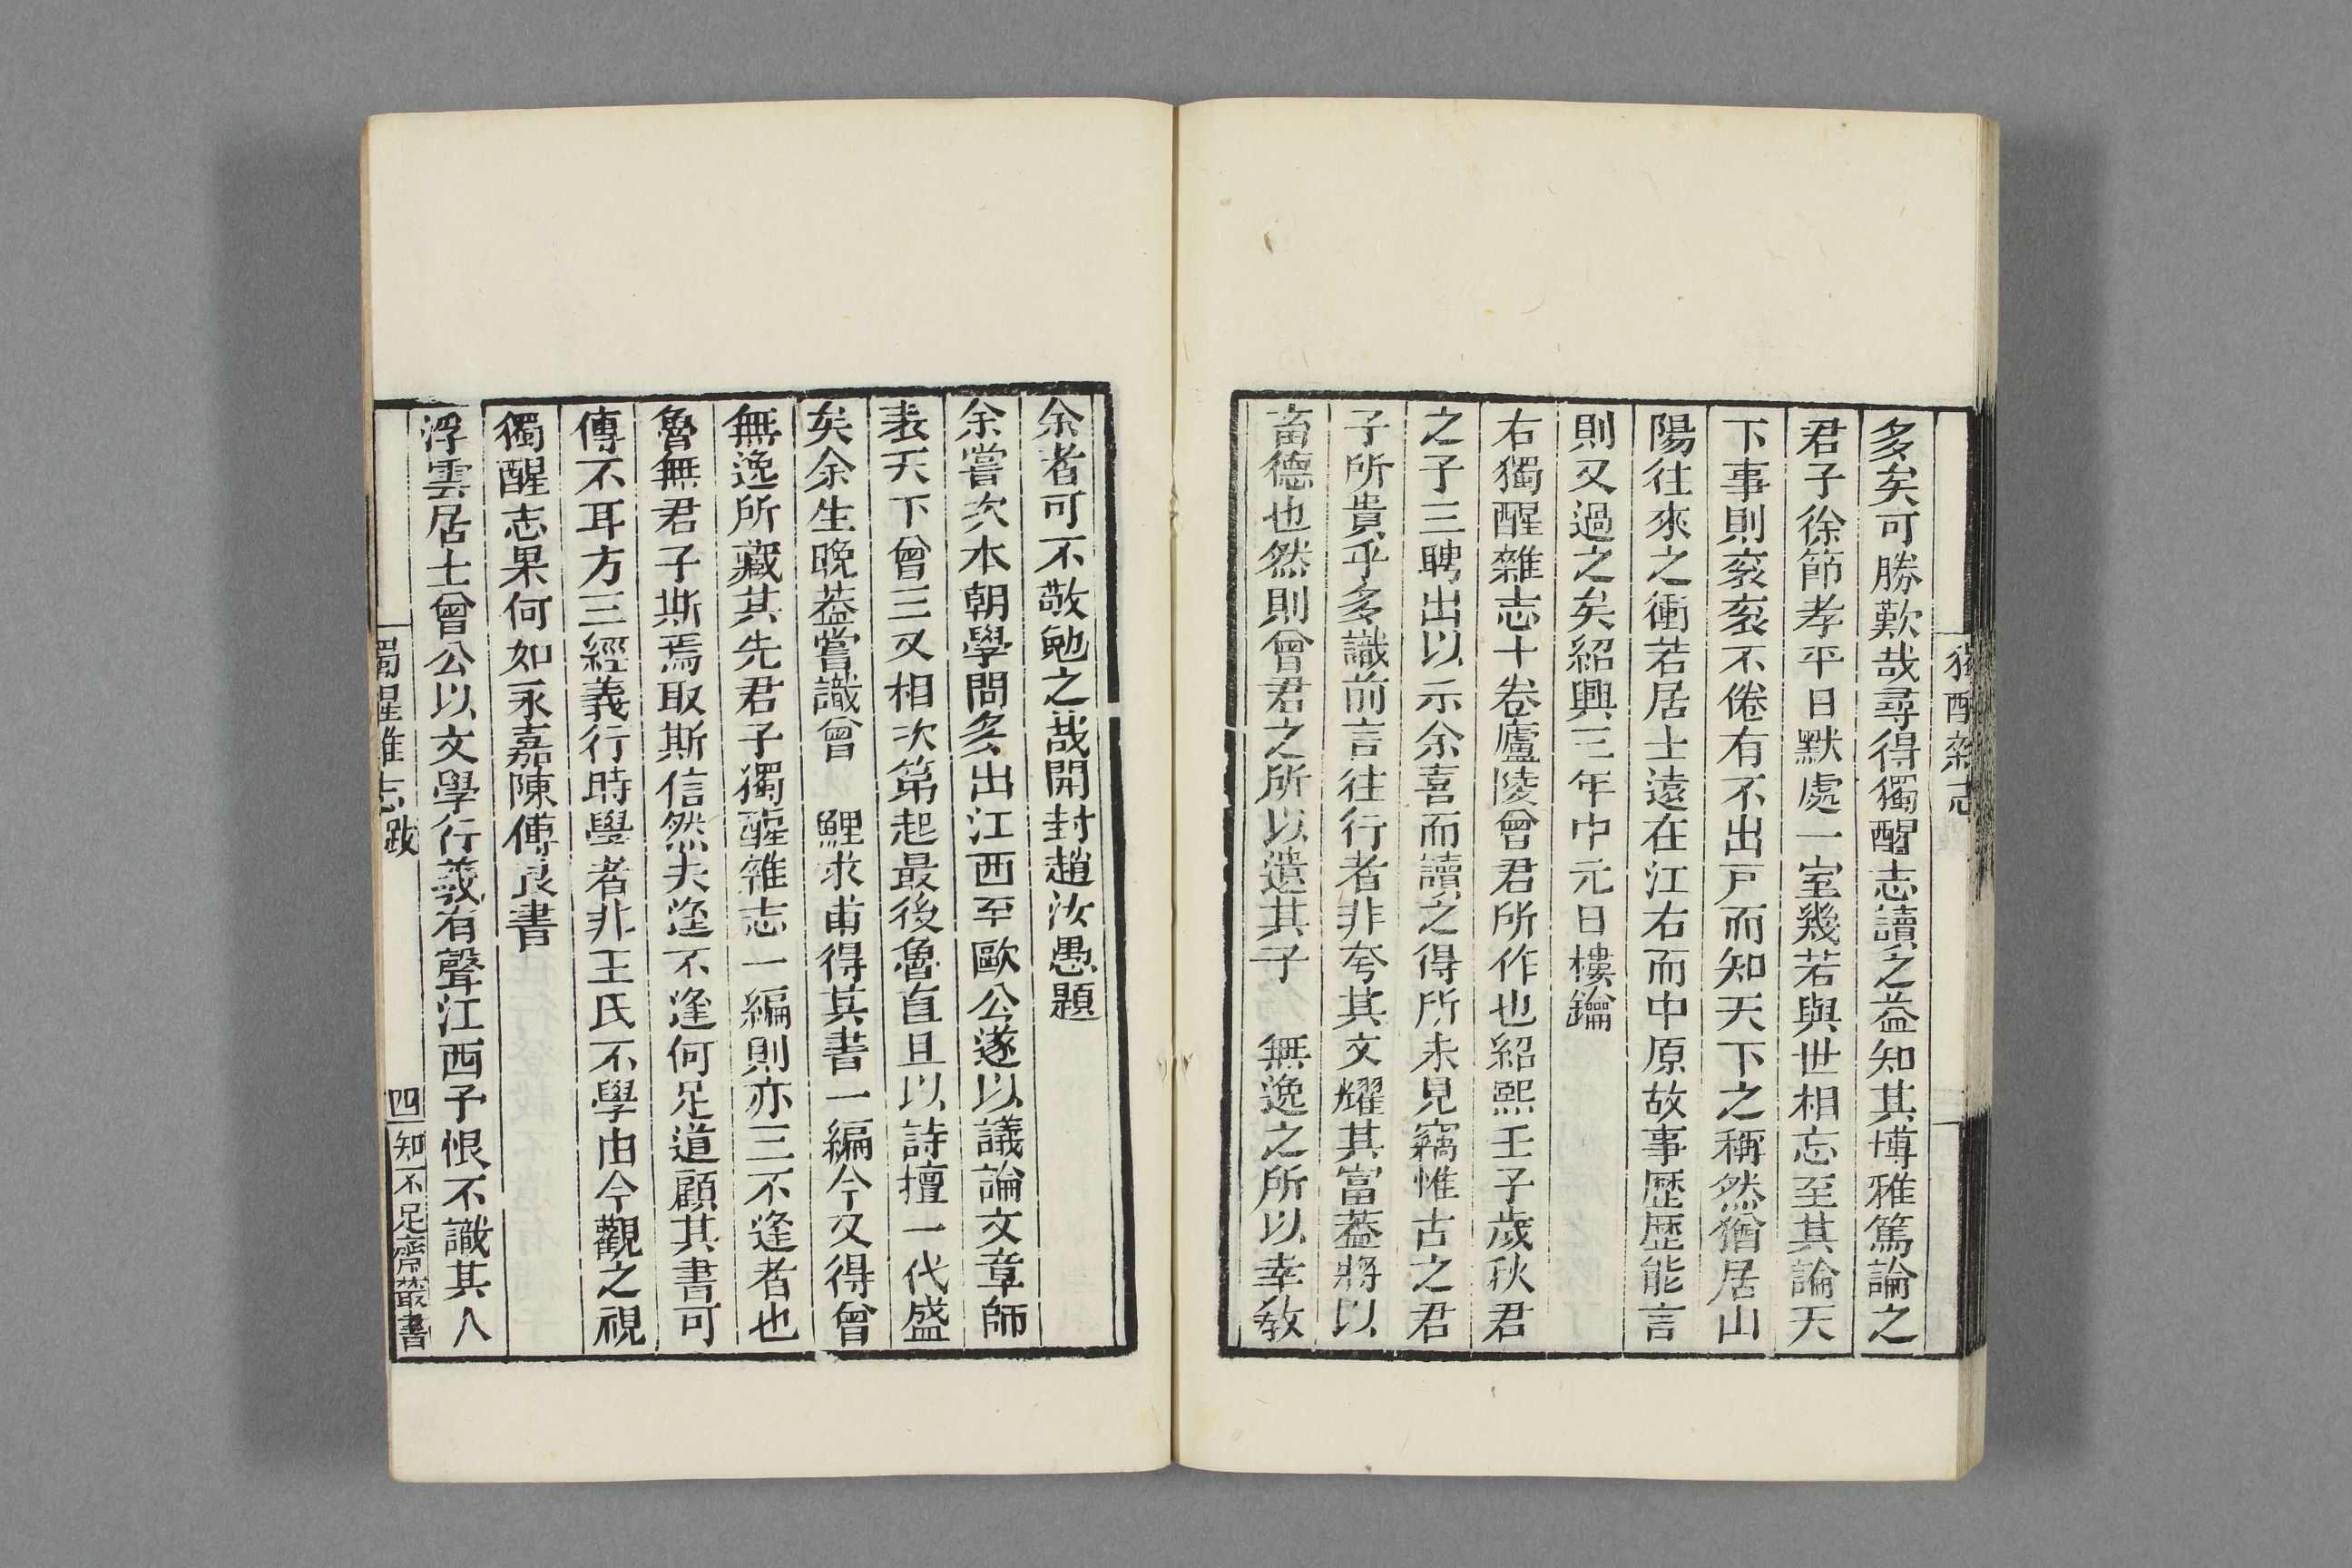 獨醒雜志
多矣可勝歎哉尋得獨醒志讀之益知其博雅篤論之
君子徐節孝平日默處一室幾若與世相忘至其論天
下事則袞袞不倦有不出戸而知天下之稱然猶居山
陽往來之衝若居士遠在江右而中原故事歷歷能言
則又過之矣紹興三年中元日樓鑰
右獨醒雜志十卷廬陵曾君所作也紹熙壬子歲秋君
之子三聘出以示余喜而讀之得所未見竊惟古之君
子所貴乎多識前言往行者非夸其文耀其富葢將以
畜德也然則曾君之所以遺其子 無逸之所以幸敎
余者可不敬勉之哉開封趙汝愚題
余嘗次本朝學問多出江西至歐公遂以議論文章師
表天下曾三又相次第起最後魯直且以詩擅一代盛
矣余生晚葢嘗識曾 鯉求甫得其書一編今又得曾
無逸所藏其先君子獨醒雜志一編則亦三不逢者也
魯無君子斯焉取斯信然夫逢不逢何足道顧其書可
傳不耳方三經義行時學者非王氏不學由今觀之視
獨醒志果何如永嘉陳傅良書
浮雲居士曾公以文學行義有聲江西予恨不識其八
獨醒雜志跋
四
知不足齋叢書